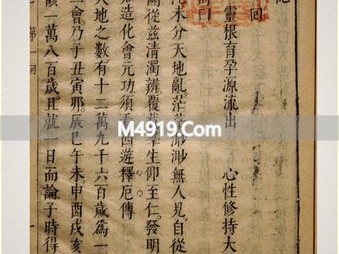 回
靈根育孕源流出　心性修持大
詩曰
沌未分天地亂茫茫渺渺無人見自從
闢從茲清濁辨覆載羣生仰至仁發明
知造化會元功須看西遊釋厄傳
天地之數有十二萬九千六百歲爲一
二會乃子丑寅卯辰巳午未申酉戌亥
該一萬八百歲且就一日而論子時得
第一回
M4919.Com